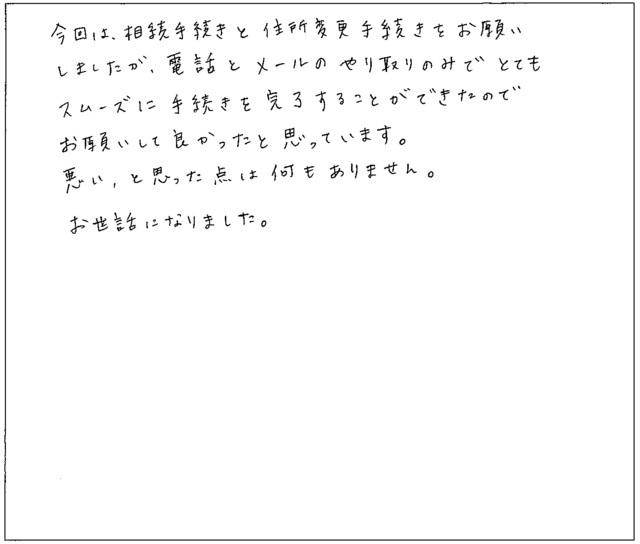 今回は、相続手続きと住所変更手続きをお願い
しましたが、電話とメールのやり取りのみでとても
スムーズに手続きを完了することができたので
お願いして良かったと思っています。
悪い、と思った点は何もありません。
お世話になりました。